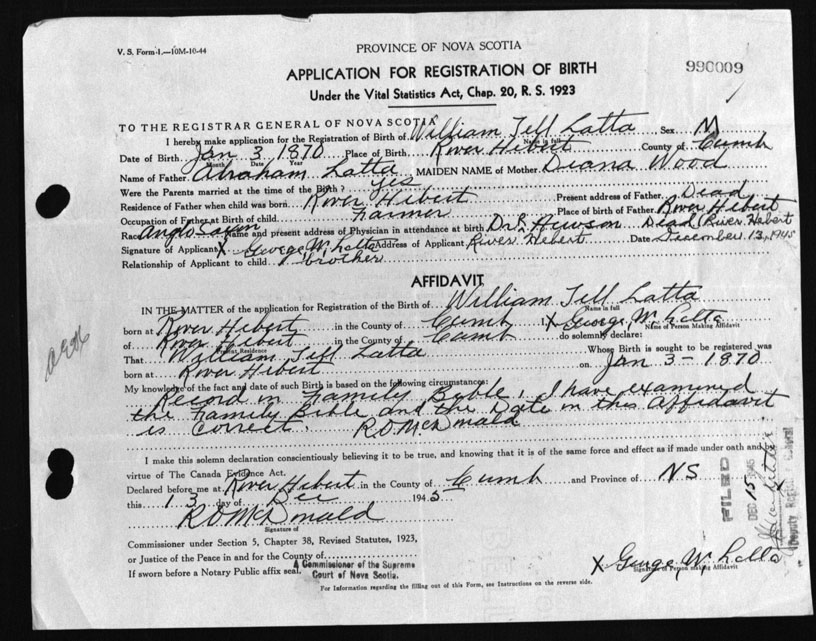 V. S. Form 1.—10M-10-44
PROVINCE OF NOVA SCOTIA
990009
APPLICATION FOR REGISTRATION OF BIRTH
Under the Vital Statistics Act, Chap. 20, R. S. 1923
TO THE REGISTRAR GENERAL OF NOVA SCOTIA
I hereby make application for the Registration of Birth of William Tell Latta Sex M
Name in full
Date of Birth Jan 3 1870 Place of Birth River Hebert County of Cumb
Month Date Year
Name of Father Abraham Latta MAIDEN NAME of Mother Diana Wood
Were the Parents married at the time of the Birth? yes
Residence of Father when child was born River Hebert Present address of Father Dead
Occupation of Father at Birth of child Farmer Place of birth of Father River Hebert
Race Anglo Saxon Name and present address of Physician in attendance at birth Dr R Hewson Dead (River Hebert
Signature of Applicant X George W. Latta Address of Applicant River Hebert Date December 13, 1945
Relationship of Applicant to child brother
AFFIDAVIT
IN THE MATTER of the application for Registration of the Birth of William Tell Latta
Name in full
born at River Hebert in the County of Cumb I, X George W. Latta
Name of Person Making Affidavit
of River Hebert in the County of Cumb do solemnly declare:
Present Residence
That William Tell Latta Whose Birth is sought to be registered was
born at River Hebert on Jan 3 - 1870
My knowledge of the fact and date of such Birth is based on the following circumstances:
Record in Family Bible. I have examined
the Family Bible and the Date in this Affidavit
is correct. R D McDonald
I make this solemn declaration conscientiously believing it to be true, and knowing that it is of the same force and effect as if made under oath and by
virtue of The Canada Evidence Act.
Declared before me at River Hebert in the County of Cumb and Province of NS
this 13 day of Dec 1945
R D McDonald
Signature of
Commissioner under Section 5, Chapter 38, Revised Statutes, 1923,
or Justice of the Peace in and for the County of
If sworn before a Notary Public affix seal.
A Commissioner of the Supreme
Court of Nova Scotia.
X George W. Latta
Signature of Person Making Affidavit
For Information regarding the filling out of this Form, see Instructions on the reverse side.
FILED
DEC 15 1945
Deputy Registrar General